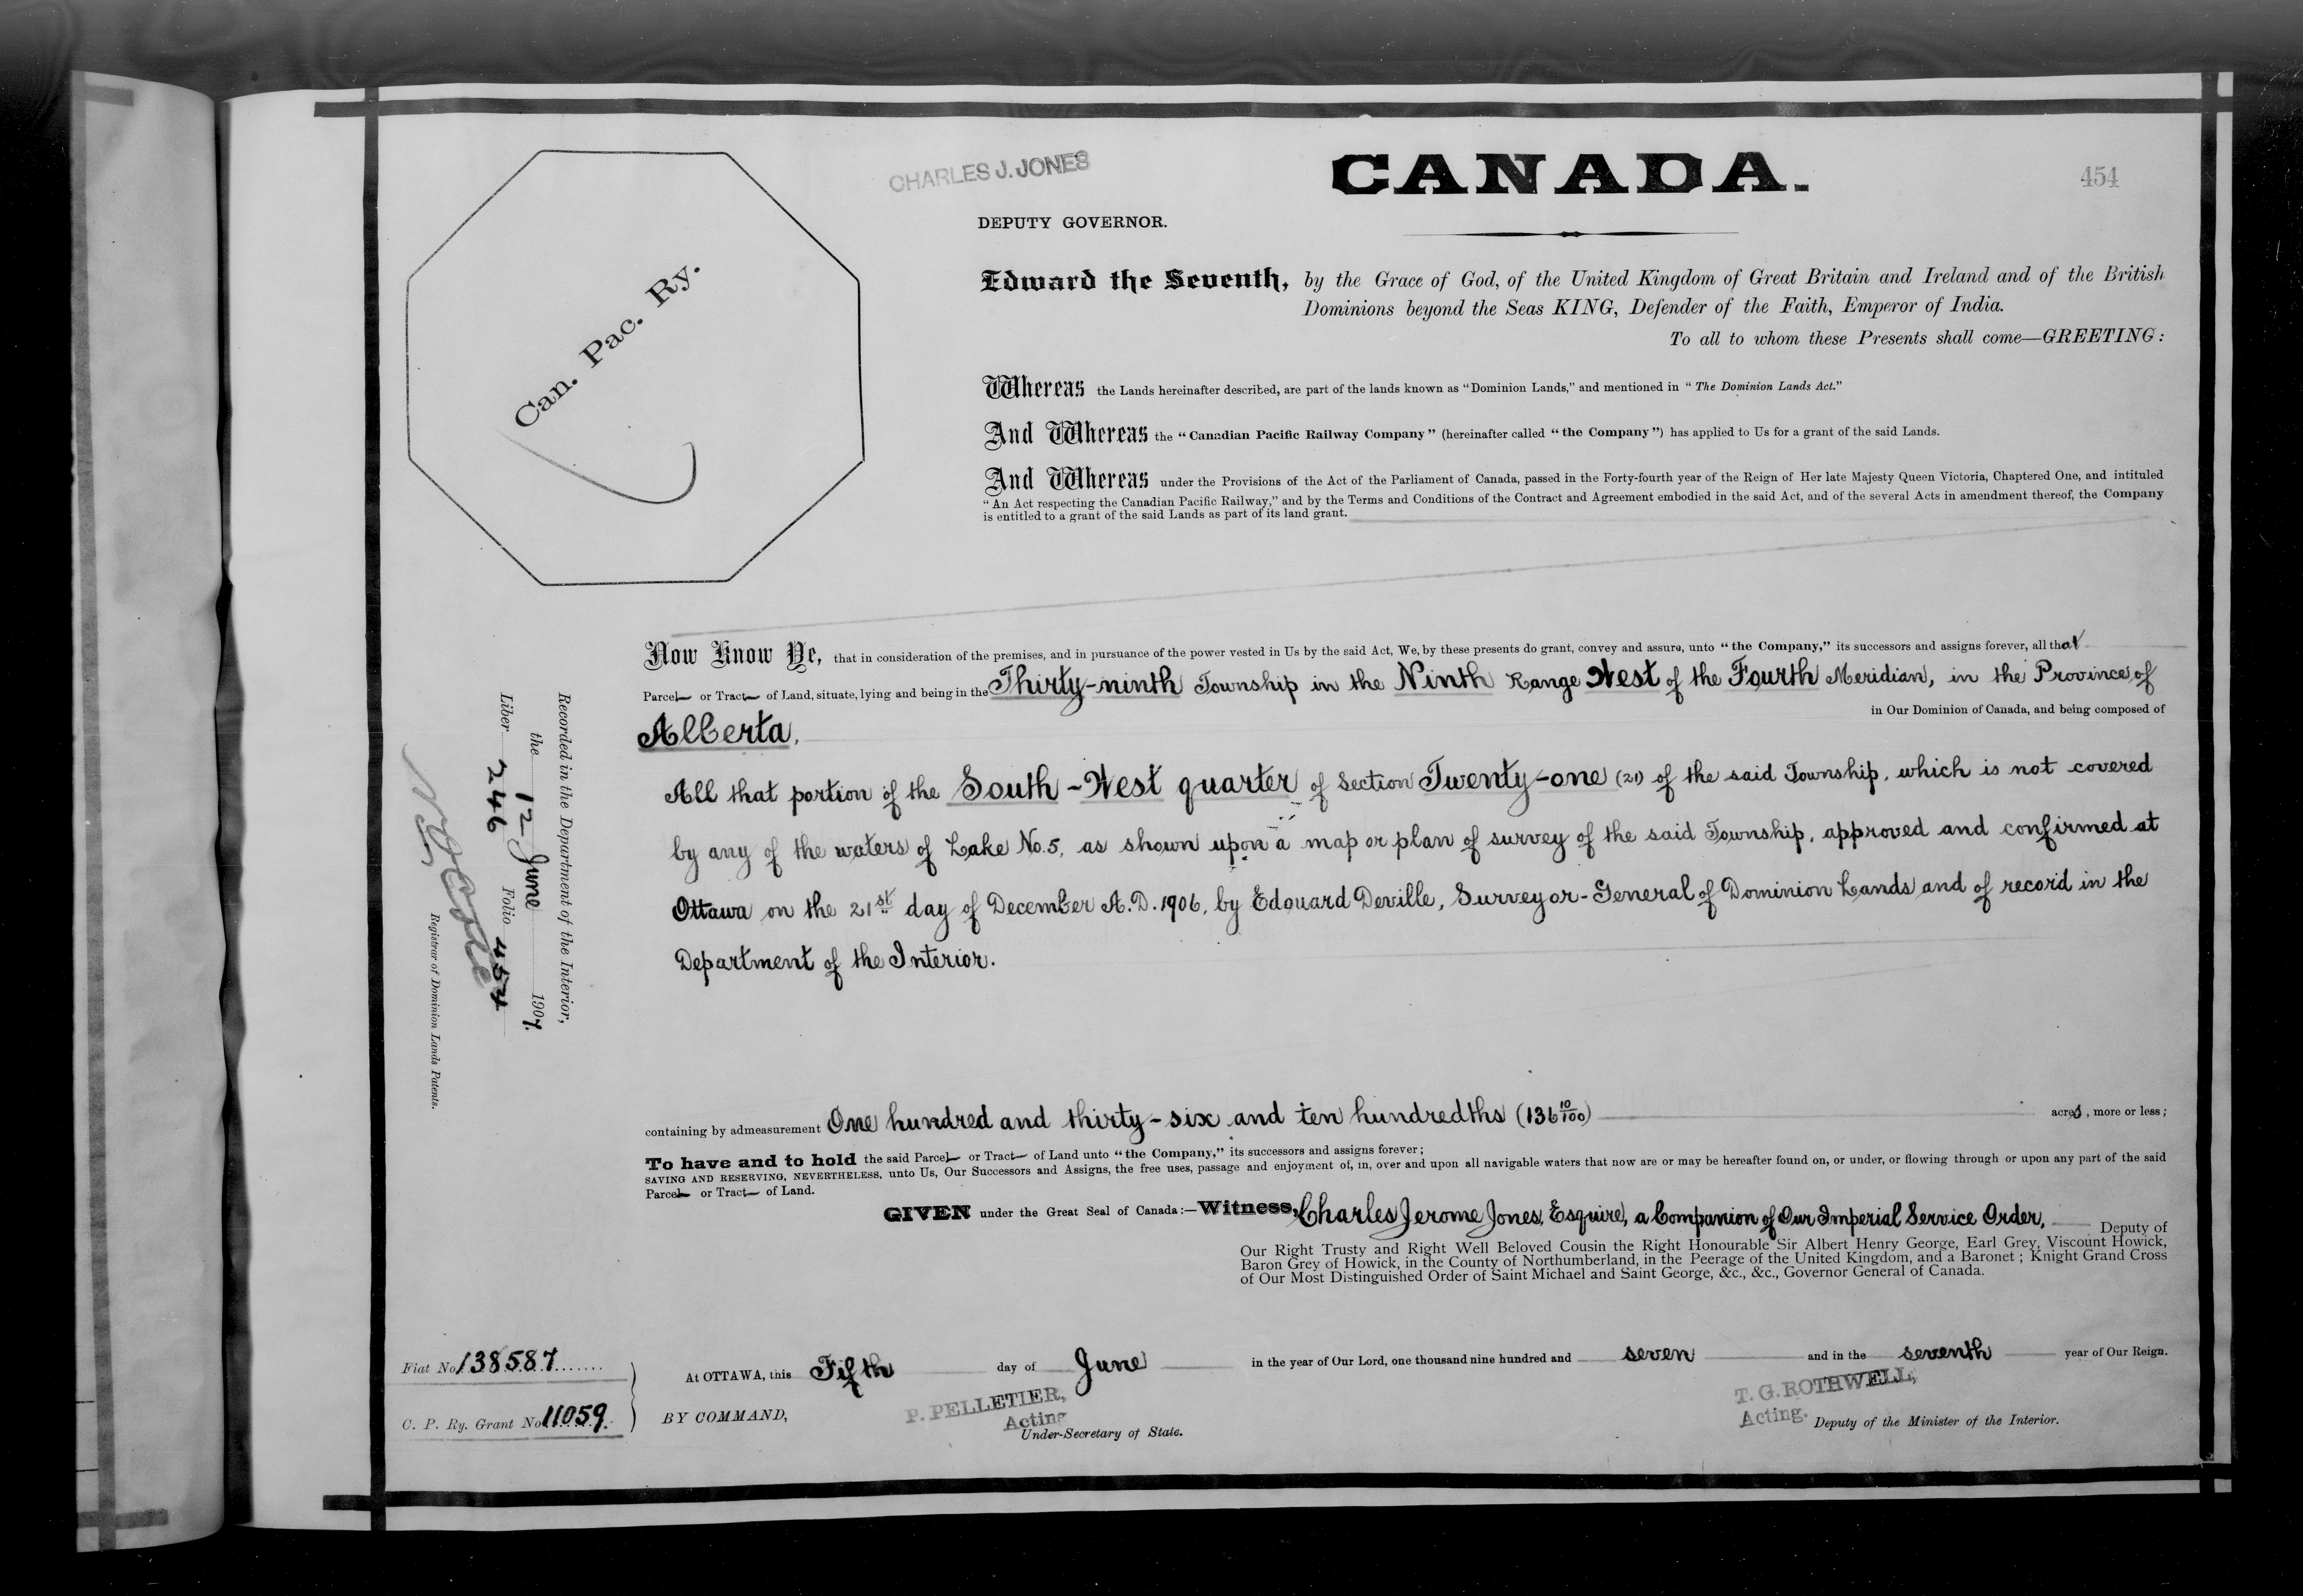 CHARLES J. JONES
CANADA.
454
DEPUTY GOVERNOR.
Can. Pac. Ry.
Edward the Seventh, by the Grace of God, of the United Kingdom of Great Britain and Ireland and of the British
Dominions beyond the Seas KING, Defender of the Faith, Emperor of India.
To all to whom these Presents shall come—GREETING:
Whereas the Lands hereinafter described, are part of the lands known as "Dominion Lands," and mentioned in "The Dominion Lands Act."
And Whereas the "Canadian Pacific Railway Company" (hereinafter called "the Company") has applied to Us for a grant of the said Lands.
And Whereas under the Provisions of the Act of the Parliament of Canada, passed in the Forty-fourth year of the Reign of Her late Majesty Queen Victoria, Chaptered One, and intituled
"An Act respecting the Canadian Pacific Railway," and by the Terms and Conditions of the Contract and Agreement embodied in the said Act, and of the several Acts in amendment thereof, the Company
is entitled to a grant of the said Lands as part of its land grant.
Now Know Ye, that in consideration of the premises, and in pursuance of the power vested in Us by the said Act, We, by these presents do grant, convey and assure, unto "the Company," its successors and assigns forever, all that
Parcel or Tract of Land, situate, lying and being in the Thirty-ninth Township in the Ninth Range West of the Fourth Meridian, in the Province of
Alberta, in Our Dominion of Canada, and being composed of
All that portion of the South-West quarter of Section Twenty-one (21) of the said Township, which is not covered
by any of the waters of Lake No. 5, as shown upon a map or plan of survey of the said Township, approved and confirmed at
Ottawa on the 21st day of December A.D. 1906, by Edouard Deville, Surveyor-General of Dominion Lands and of record in the
Department of the Interior.
containing by admeasurement One hundred and thirty-six and ten hundredths (136 10/100) acres, more or less;
To have and to hold the said Parcel or Tract of Land unto "the Company," its successors and assigns forever;
SAVING AND RESERVING, NEVERTHELESS, unto Us, Our Successors and Assigns, the free uses, passage and enjoyment of, in, over and upon all navigable waters that now are or may be hereafter found on, or under, or flowing through or upon any part of the said
Parcel or Tract of Land.
GIVEN under the Great Seal of Canada:—Witness, Charles Jerome Jones, Esquire, a Companion of Our Imperial Service Order, Deputy of
Our Right Trusty and Right Well Beloved Cousin the Right Honourable Sir Albert Henry George, Earl Grey, Viscount Howick,
Baron Grey of Howick, in the County of Northumberland, in the Peerage of the United Kingdom, and a Baronet; Knight Grand Cross
of Our Most Distinguished Order of Saint Michael and Saint George, &c., &c., Governor General of Canada.
At OTTAWA, this Fifth day of June in the year of Our Lord, one thousand nine hundred and seven and in the seventh year of Our Reign.
BY COMMAND,
P. PELLETIER,
Acting
Under-Secretary of State.
T. G. ROTHWELL,
Acting. Deputy of the Minister of the Interior.
Fiat No. 138587
C. P. Ry. Grant No. 11059.
Recorded in the Department of the Interior,
the 12 June 1907.
Liber 246 Folio 454
Registrar of Dominion Lands Patents.